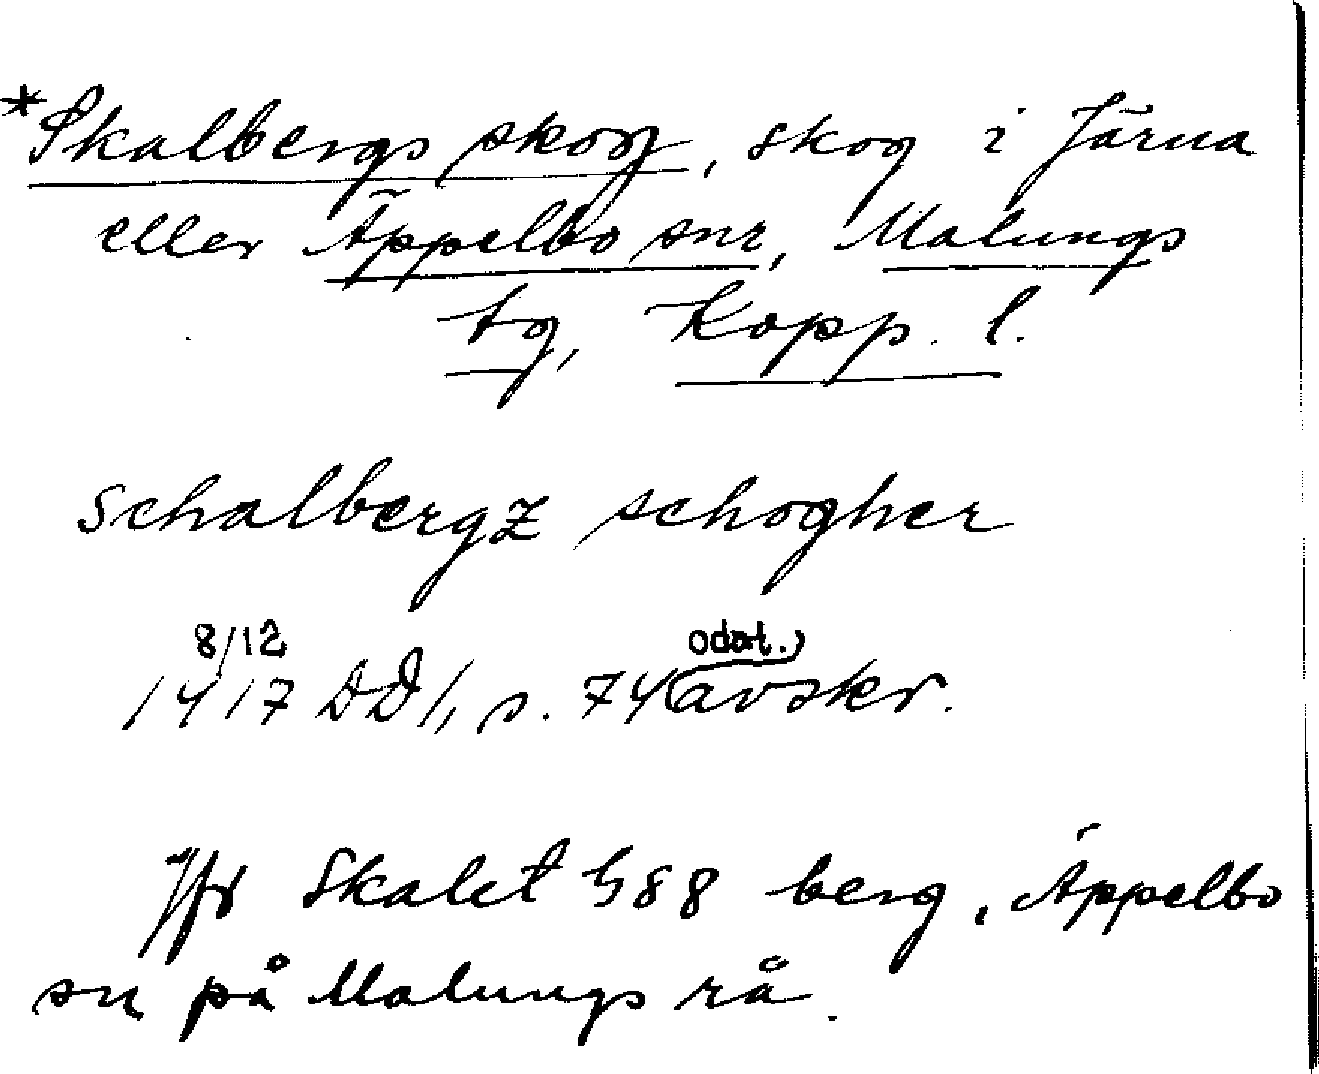 *Skalbergs skog, skog i Järna
eller Äppelbo snr, Malungs
tg, Kopp. l.
Schalbergz schogher
8/12 odat.)
1417 DD 1, s. 74 avskr.
Jfr Skalet 588 berg, Äppelbo
sn på Malungs rå.